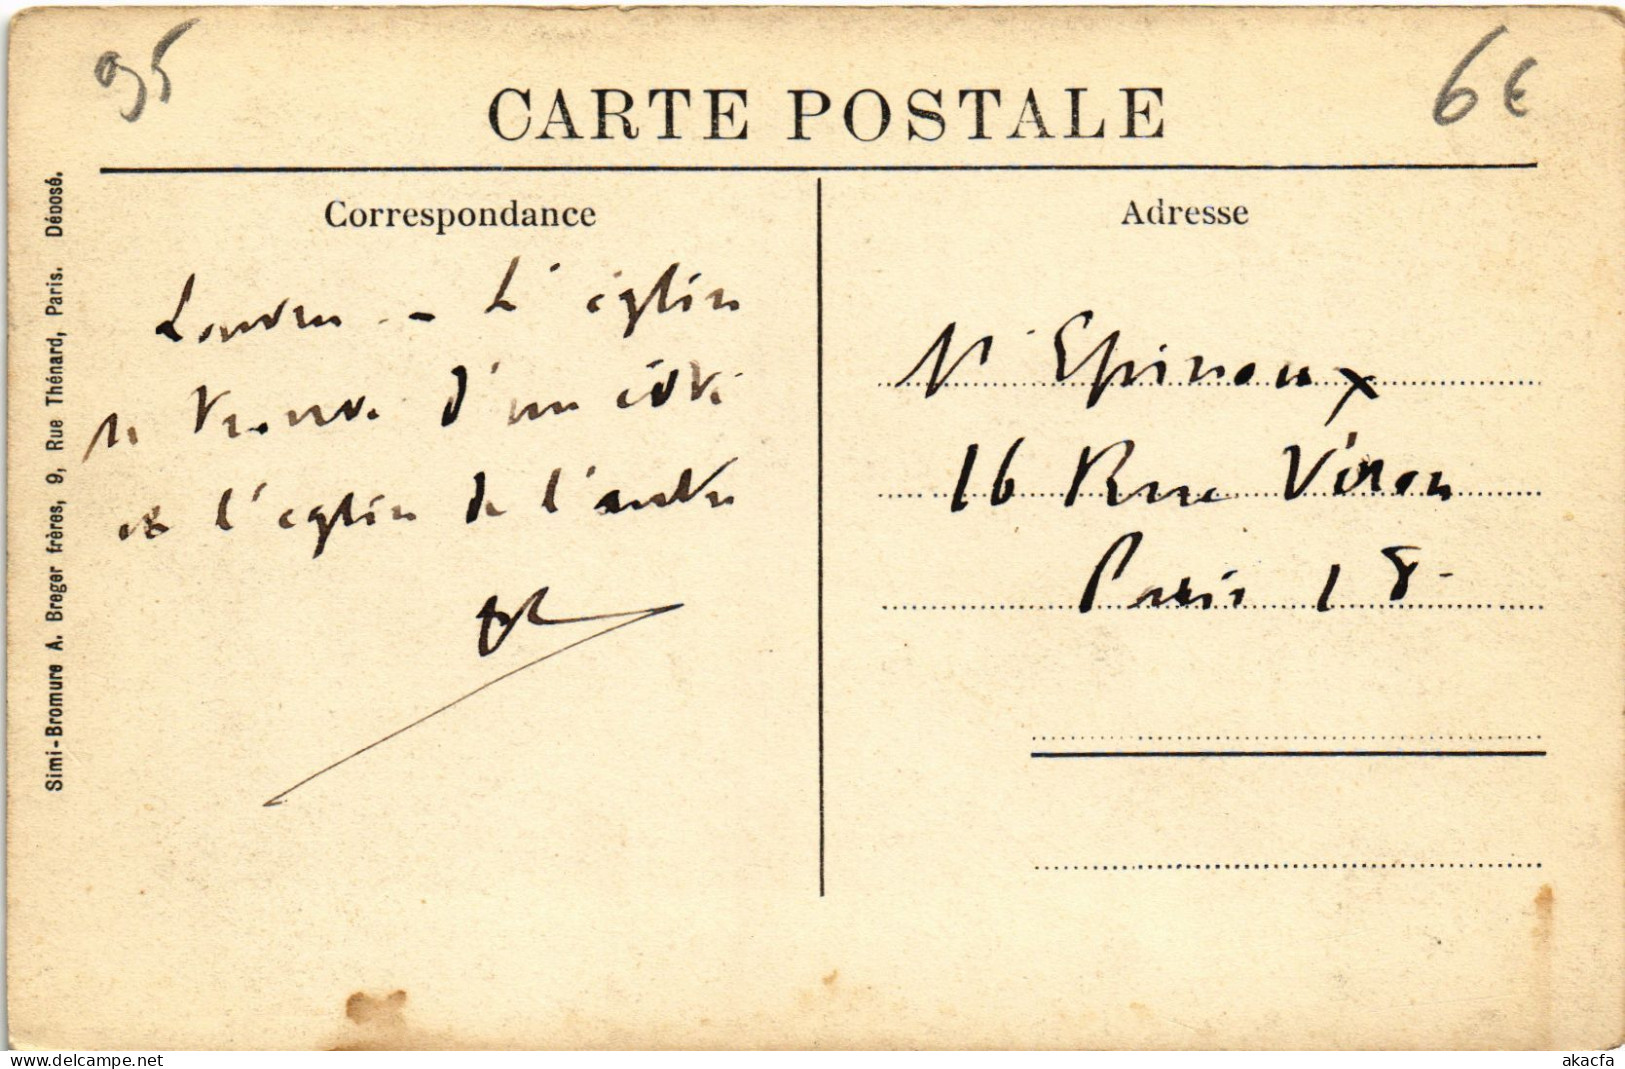 95
6€
CARTE POSTALE
Correspondance
Adresse
Louvres - L'église
se trouve d'un côté
et l'église de l'autre
Mr Epinoux
16 Rue Véron
Paris 18-
Simi-Bromure A. Breger frères, 9, Rue Thénard, Paris. Déposé.
www.delcampe.net
akacfa